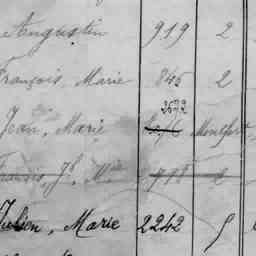 Augustin 919 2
François, Marie 845 2
2672
Jean, Marie Montfort
François, Jh, Mie 918 2
Julien, Marie 2242 5